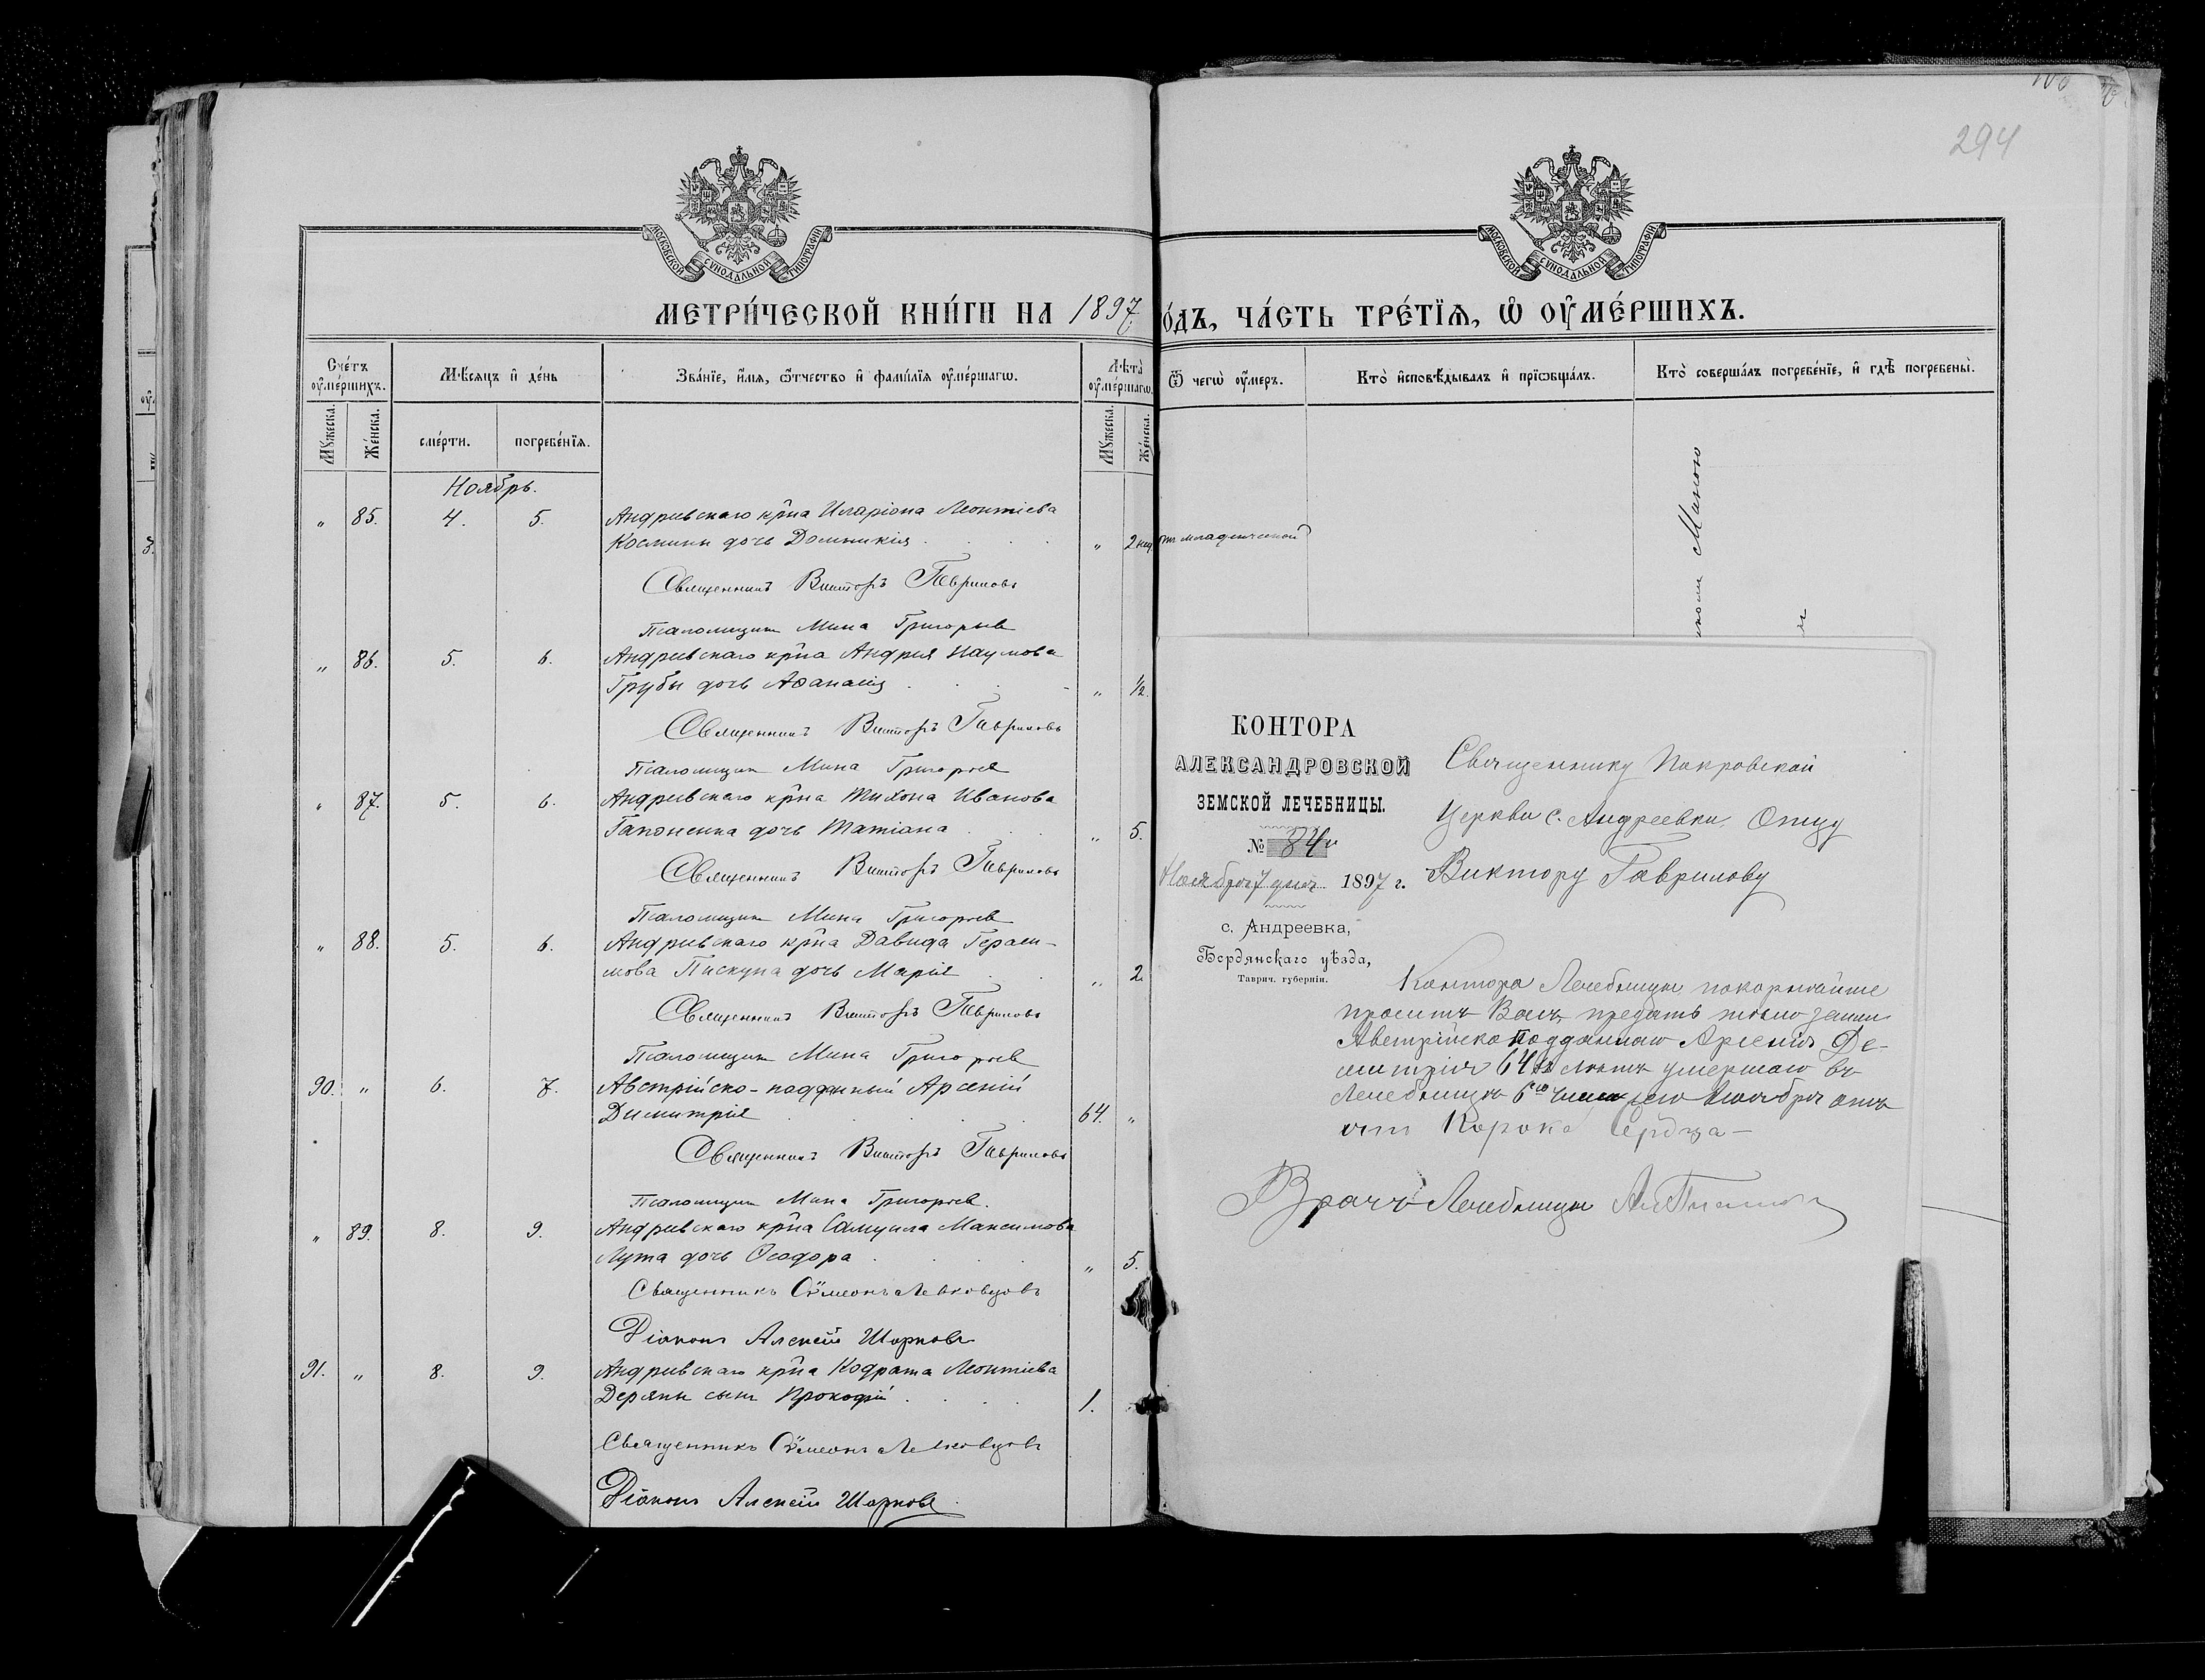 294
МОСКОВСКОЙ СѴНОДАЛЬНОЙ ТИПОГРАФІИ
МОСКОВСКОЙ СѴНОДАЛЬНОЙ ТИПОГРАФІИ
МЕТРИ́ЧЕСКОЙ КНИ́ГИ НА 1897
О́ДЪ, ЧА́СТЬ ТРЕ́ТЇѦ, Ѡ҆ ОУ҆МЕ́РШИХЪ.
Сче́тъ оу҆ме́ршихъ.
Мѣ́сѧцъ и҆ де́нь
Зва́нїе, и҆́мѧ, ѻ҆́тчество и҆ фами́лїѧ оу҆ме́ршагѡ.
Лѣ́та оу҆ме́ршагѡ.
Ѿ чегѡ̀ оу҆́меръ.
Кто̀ и҆сповѣ́дывалъ и҆ прїѡбща́лъ.
Кто̀ соверша́лъ погребе́нїе, и҆ гдѣ̀ погребены̀.
Мꙋ́жеска.
Же́нска.
сме́рти.
погребе́нїѧ.
Мꙋ́жеска.
Же́нска.
Ноябрь.
" 85. 4. 5. Андреевскаго кр̃на Иларіона Леонтіева
Космины дочь Домникія " 2 нед. младенческой
Священникъ Викторъ Гавриловъ
Псаломщик Мина Григорьев
" 86. 5. 6. Андреевскаго кр̃на Андрея Наумова
Трубы дочь Аѳанасія " 1/2.
Священникъ Викторъ Гавриловъ
Псаломщик Мина Григорьев
" 87. 5. 6. Андреевскаго кр̃на Тихона Иванова
Гапоненка дочь Татіана " 5.
Священникъ Викторъ Гавриловъ
Псаломщик Мина Григорьев
" 88. 5. 6. Андреевскаго кр̃на Давида Гераси-
мова Пискуна дочь Марія " 2.
Священникъ Викторъ Гавриловъ
Псаломщик Мина Григорьев
90. " 6. 7. Австрійско-подданный Арсеній
Димитрія 64. "
Священникъ Викторъ Гавриловъ
Псаломщик Мина Григорьев.
" 89. 8. 9. Андреевскаго кр̃на Самуила Максимова
Лута дочь Ѳеодора " 5.
Священникъ Сѵмеонъ Левковцовъ
Діаконъ Алексій Шорковъ
91. " 8. 9. Андреевскаго кр̃на Кодрата Леонтіева
Дерякы сынъ Прокофій 1.
Священникъ Сѵмеонъ Левковцовъ
Діаконъ Алексій Шорковъ
Миною
КОНТОРА
АЛЕКСАНДРОВСКОЙ
ЗЕМСКОЙ ЛЕЧЕБНИЦЫ.
№ 84
Ноября 7 дня 1897 г.
с. Андреевка,
Бердянскаго уѣзда,
Таврич. губерніи.
Священнику Покровской
Церкви с. Андреевки, Отцу
Виктору Гаврилову
Контора Лечебницы покорнѣйше
проситъ Васъ предать тѣло земли
Австрійско подданнаго Арсенія Де-
митрія 64 лѣтъ умершаго въ
Лечебницѣ 6го числа сего Ноября отъ
отъ Порока Сердца —
Врачъ Лечебницы